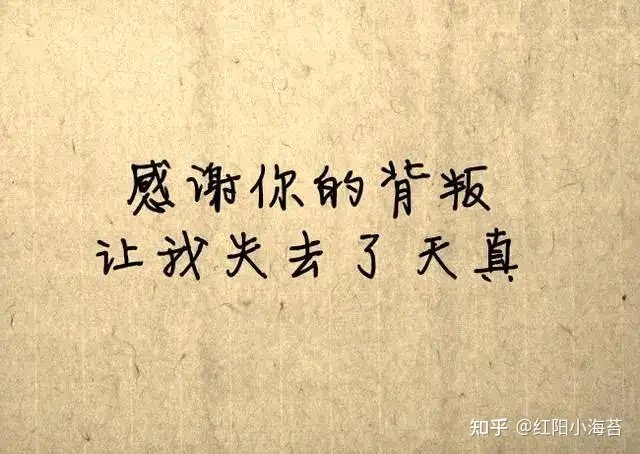 感谢你的背叛
让我失去了天真
知乎 @红阳小海苔